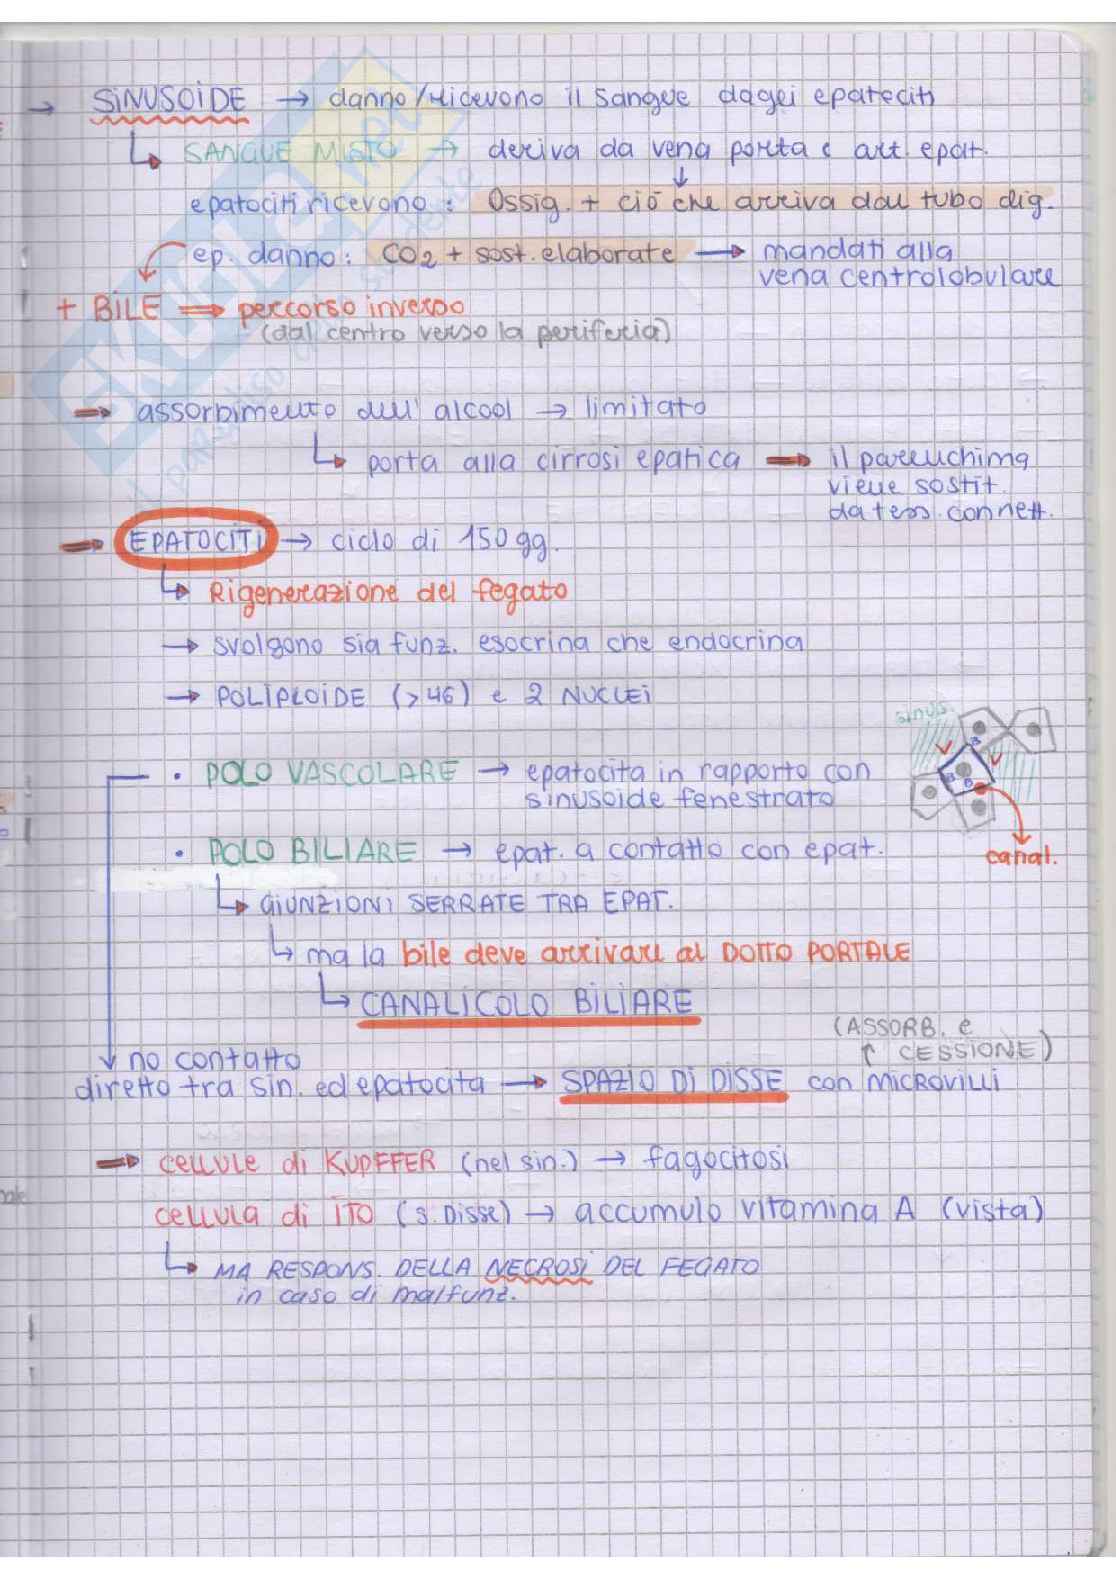 → SINUSOIDE → danno/ricevono il sangue dagli epatociti
↳ SANGUE MISTO → deriva da vena porta e art. epat.
epatociti ricevono: Ossig. + ciò che arriva dal tubo dig.
ep. danno: CO2 + sost. elaborate → mandati alla
vena centrolobulare
+ BILE ⇒ percorso inverso
(dal centro verso la periferia)
⇒ assorbimento dell'alcool → limitato
↳ porta alla cirrosi epatica ⇒ il parenchima
viene sostit.
da tess. connett.
⇒ EPATOCITI → ciclo di 150 gg.
↳ Rigenerazione del fegato
→ svolgono sia funz. esocrina che endocrina
→ POLIPLOIDE (>46) e 2 NUCLEI
sinus.
• POLO VASCOLARE → epatocita in rapporto con
sinusoide fenestrato
B
B
B
• POLO BILIARE → epat. a contatto con epat.
canal.
↳ GIUNZIONI SERRATE TRA EPAT.
↳ ma la bile deve arrivare al DOTTO PORTALE
↳ CANALICOLO BILIARE
(ASSORB. e
↑ CESSIONE)
no contatto
diretto tra sin. ed epatocita → SPAZIO DI DISSE con MICROVILLI
⇒ cellule di KUPFFER (nel sin.) → fagocitosi
cellula di ITO (s. Disse) → accumulo vitamina A (vista)
↳ MA RESPONS. DELLA NECROSI DEL FEGATO
in caso di malfunz.